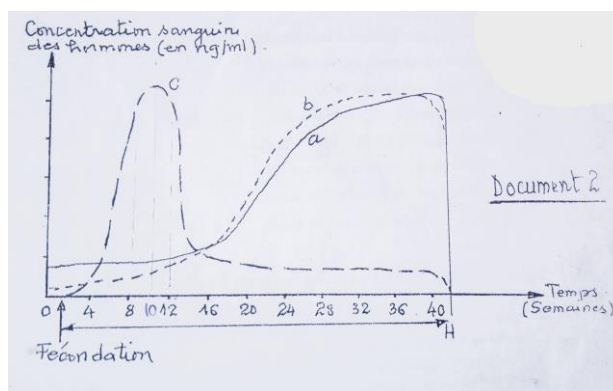 Concentration sanguine
des hormones (en ng/ml).
c
b
a
Document 2
0 4 8 10 12 16 20 24 28 32 36 40
H
Temps
(Semaines)
Fécondation